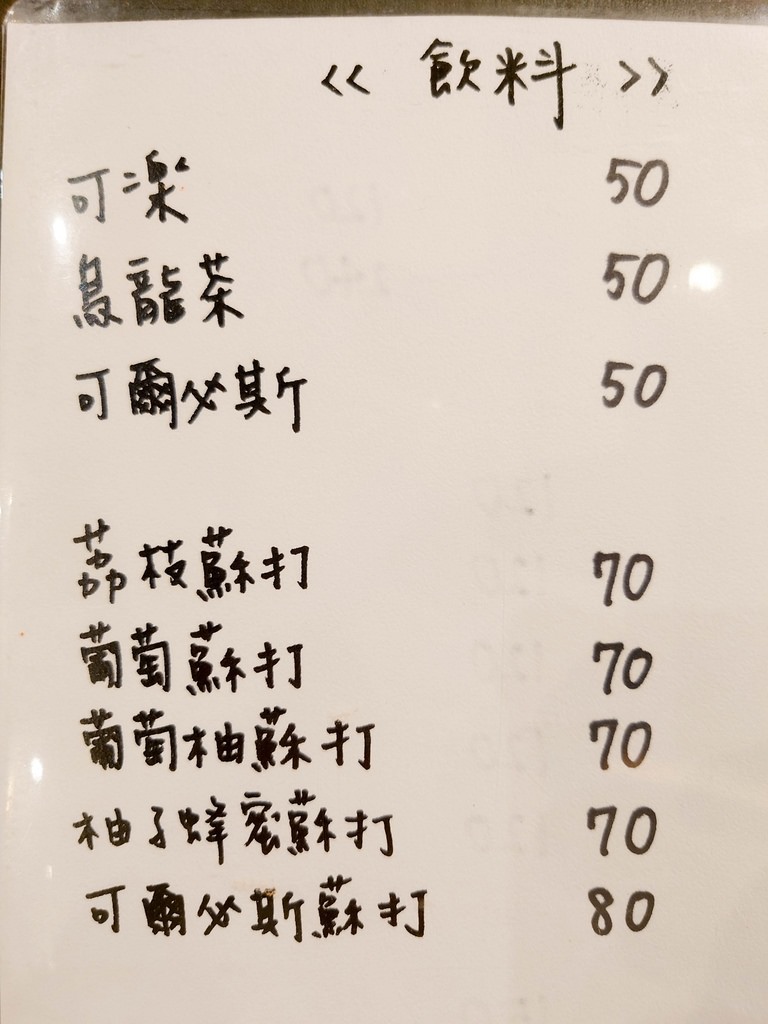 << 飲料 >>
可楽 50
烏龍茶 50
可爾必斯 50
荔枝蘇打 70
葡萄蘇打 70
葡萄柚蘇打 70
柚子蜂蜜蘇打 70
可爾必斯蘇打 80